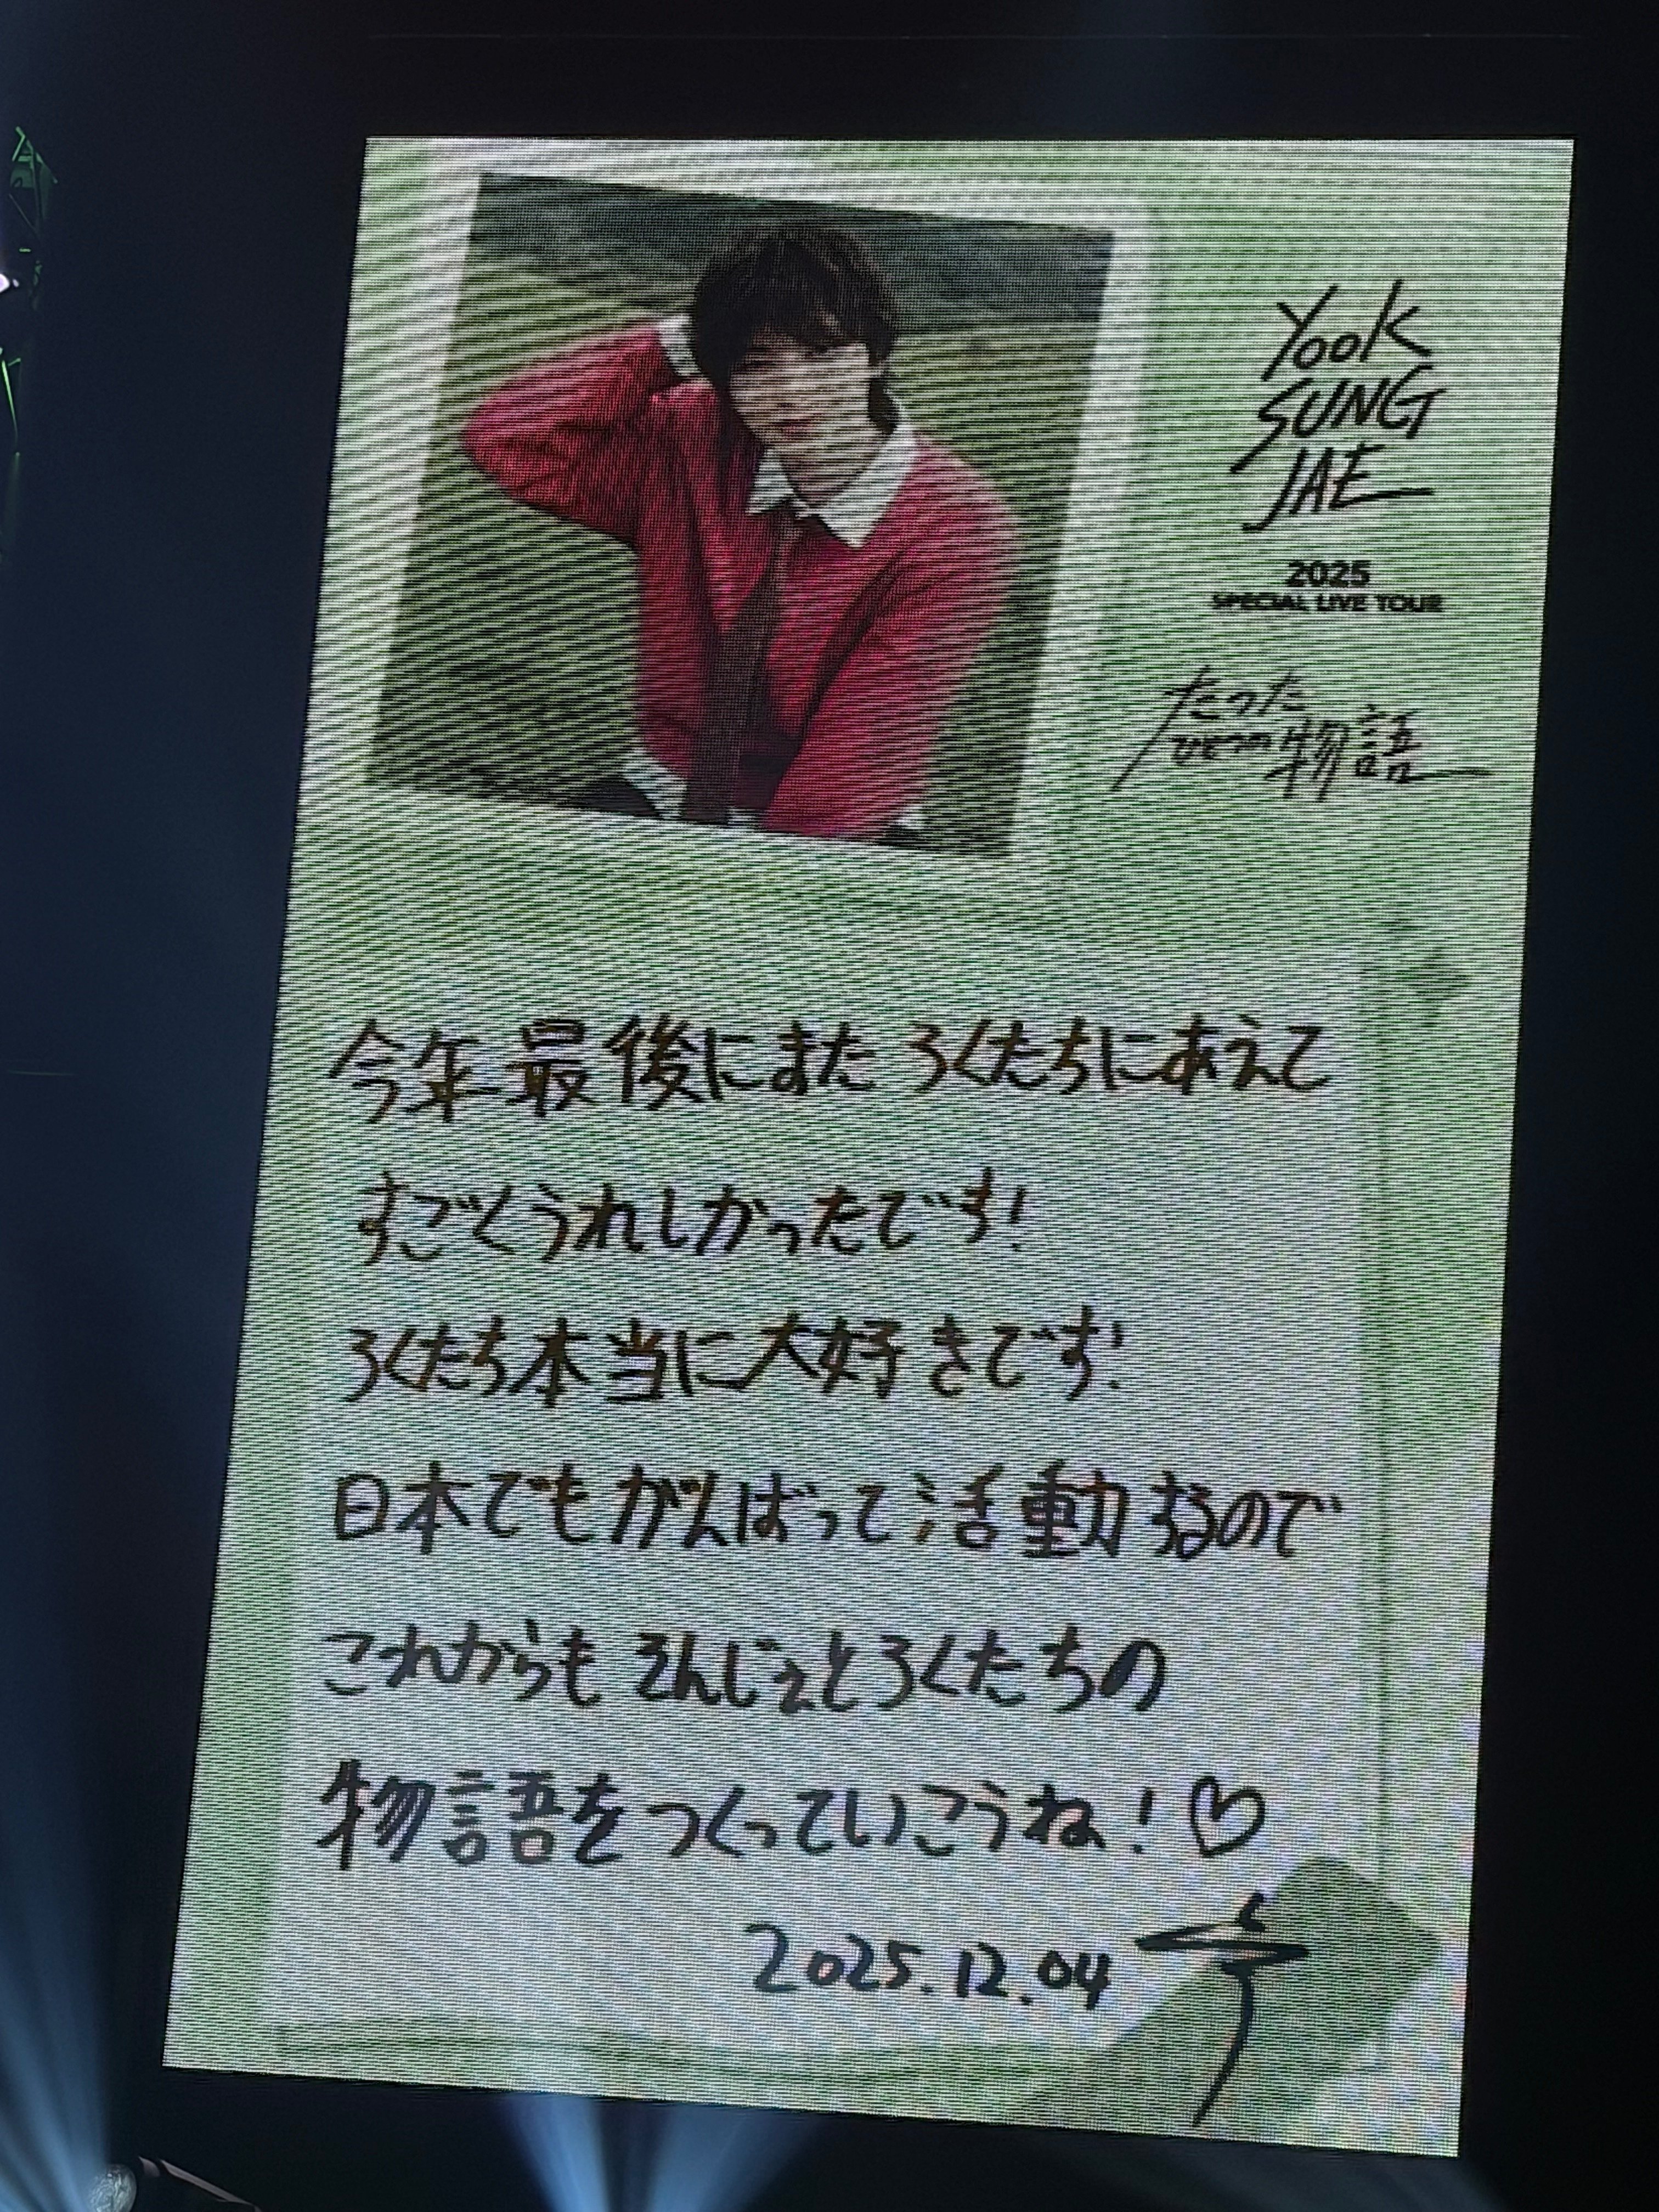 Yook
SUNG
JAE
2025
SPECIAL LIVE TOUR
たった
ひとつの物語
今年最後にまた ろくたちにあえて
すごくうれしかったです!
ろくたち本当に大好きです!
日本でもがんばって活動するので
これからも そんじぇとろくたちの
物語をつくっていこうね!♡
2025.12.04